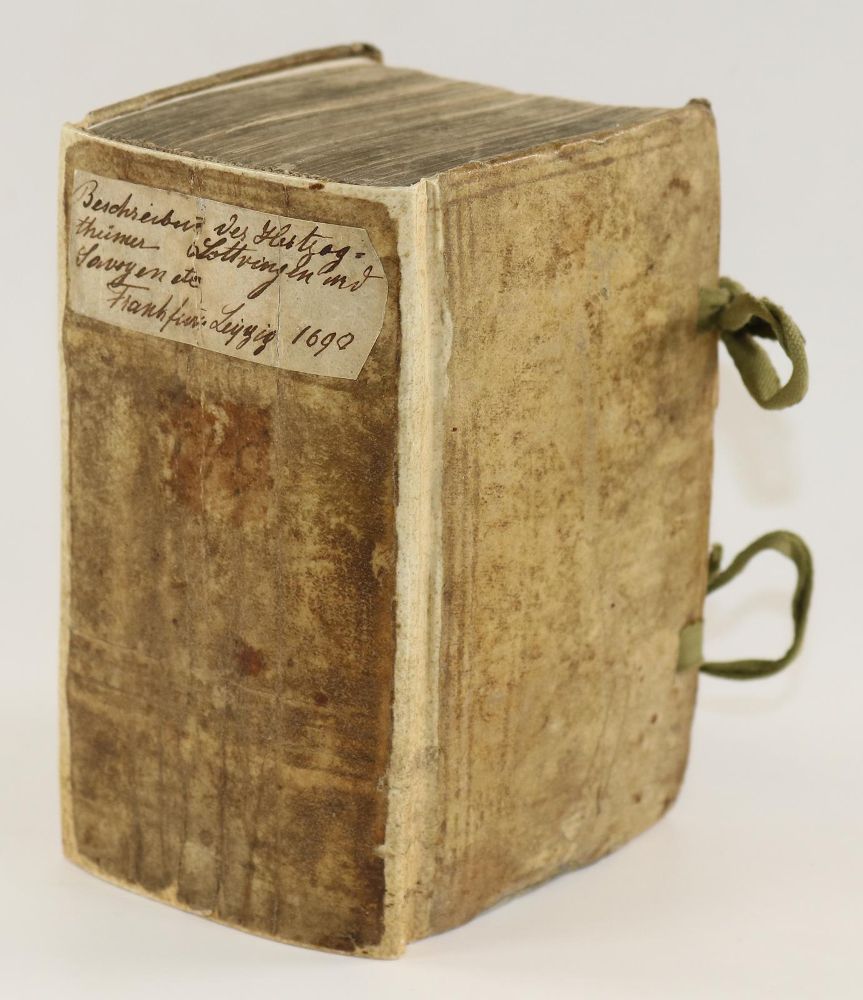 Beschreibun der Hertzog=
thümer Lottringen und
Savoyen etc
Frankfur: Leipzig 1690